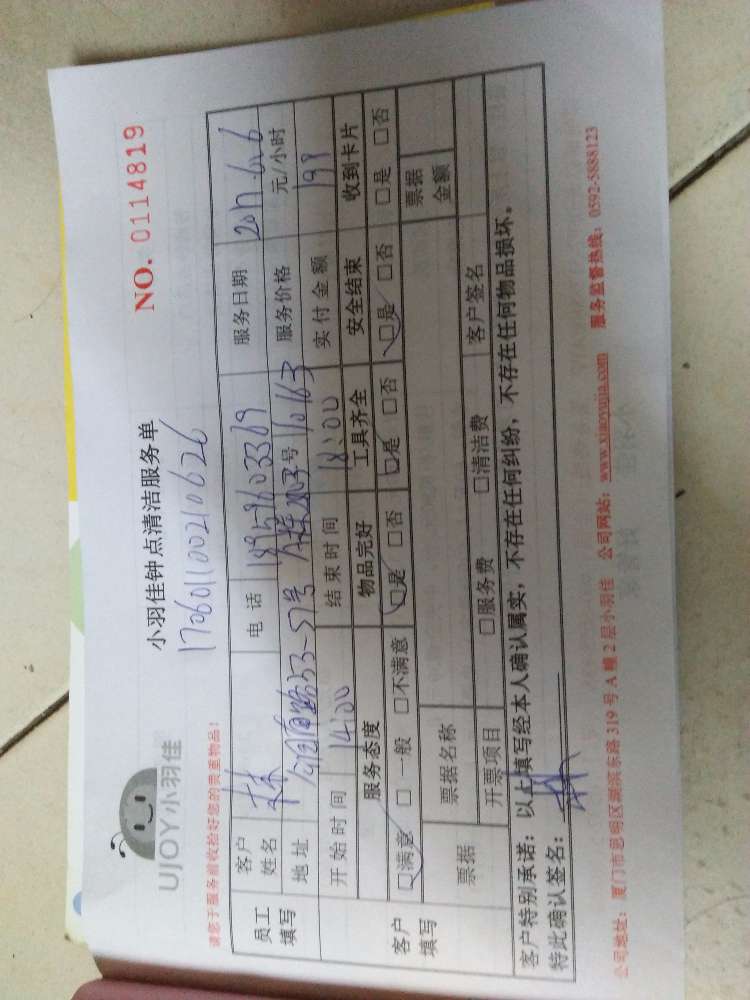 UJOY小羽佳
小羽佳钟点清洁服务单
NO. 0114819
170601100210626
请您于服务前收拾好您的贵重物品!
员工填写
客户姓名 林 电话 服务日期 2017.6.6
地址 号 服务价格 元/小时
开始时间 14:00 结束时间 18:00 实付金额 198
客户填写
服务态度 物品完好 工具齐全 安全结束 收到卡片
□满意 □一般 □不满意 □是 □否 □是 □否 □是 □否 □是 □否
票据 票据名称 票据金额
开票项目 □服务费 □清洁费 客户签名
客户特别承诺:以上填写经本人确认属实,不存在任何纠纷,不存在任何物品损坏。
特此确认签名: 林
公司地址:厦门市思明区湖滨东路319号A幢2层小羽佳 公司网站:www.xiaoyujia.com 服务监督热线:0592-5888123